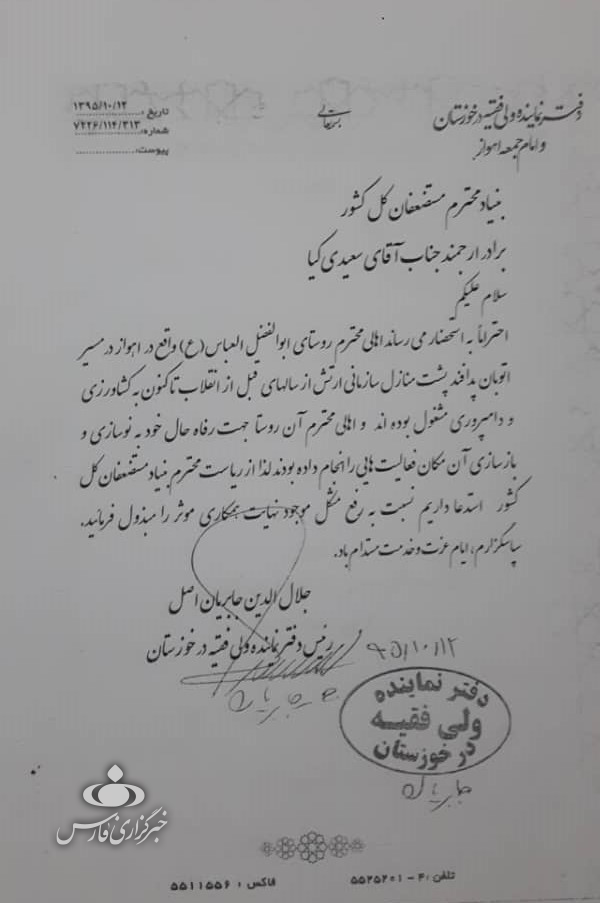 دفتر نماینده ولی فقیه در خوزستان
و امام جمعه اهواز
بسمه تعالی
تاریخ: ۱۳۹۵/۱۰/۱۴
شماره: ۷۲۲۶/۱۱۴/۳۱۳
پیوست:
بنیاد محترم مستضعفان کل کشور
برادر ارجمند جناب آقای سعیدی کیا
سلام علیکم
احتراماً به استحضار می رساند اهالی محترم روستای ابوالفضل العباس(ع) واقع در اهواز در مسیر
اتوبان پدافند پشت منازل سازمانی ارتش از سالهای قبل از انقلاب تاکنون به کشاورزی
و دامپروری مشغول بوده اند و اهالی محترم آن روستا جهت رفاه حال خود به نوسازی و
بازسازی آن مکان فعالیت هایی را انجام داده بودند لذا از ریاست محترم بنیاد مستضعفان کل
کشور استدعا داریم نسبت به رفع مشکل موجود نهایت همکاری موثر را مبذول فرمائید.
سپاسگزارم، ایام عزت و خدمت مستدام باد.
جلال الدین جابریان اصل
رئیس دفتر نماینده ولی فقیه در خوزستان
۹۵/۱۰/۱۲
دفتر نماینده
ولی فقیه
در خوزستان
خبرگزاری فارس
تلفن: ۴ - ۵۵۲۵۲۰۱
فاکس: ۵۵۱۱۵۵۶